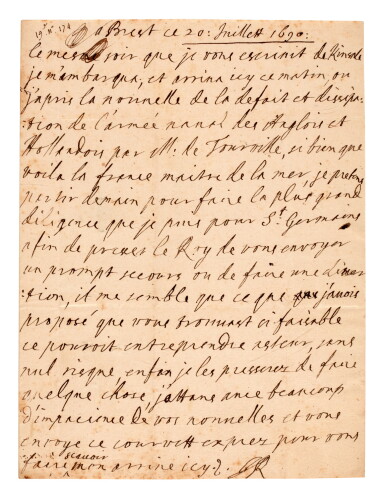 a Brest ce 20: Juillett 1690:
le mesme soir que je vous escrivit de Kinsale
je mambarqua, et arriva icy ce matin, ou
j'apris la nouvelle de la defait et dissipa-
-tion de l'armée naval des Anglois et
Hollandois par Mr. de Tourville, si bien que
voila la france maitre de la mer, je pretens
partir demain pour faire la plus grand
diligence que je puis pour St. Germains
afin de presser le Roy de vous envoyer
un prompt secours ou de faire une diver
-tion, il me semble que ce que j'avois
proposé que vous trouvast si faisable
ce pouvoit entreprendre asteur, sans
nul risque, enfin je les presserez de faire
quelque chose, j'attans avec beaucoup
d'impacience de vos nouvelles et vous
envoye ce courvett exprez pour vous
faire scavoir mon arrive icy.
JR